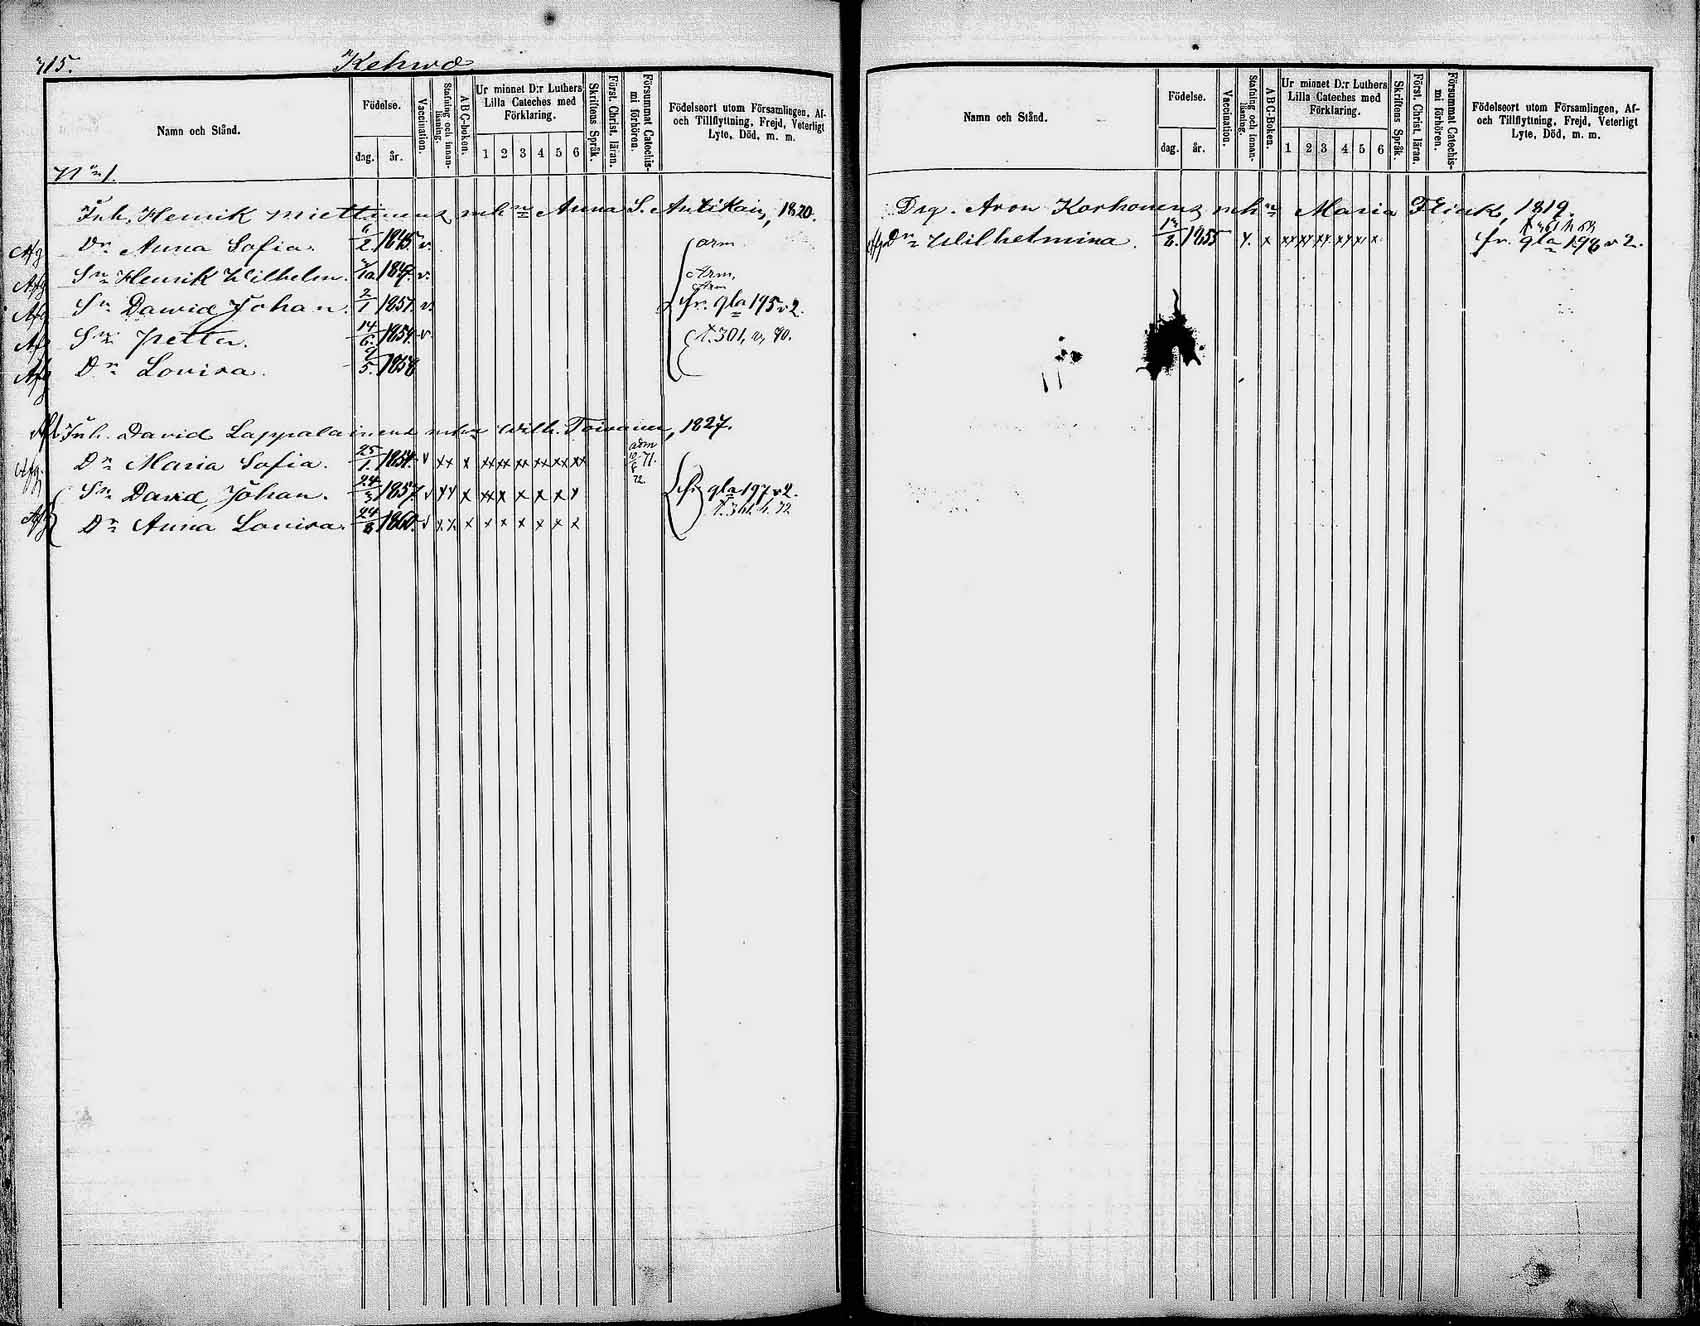 715.
Kehwo
Namn och Stånd.
Födelse.
dag.
år.
Vaccination.
Stafning och innan-läsning.
ABC-boken.
Ur minnet D:r Luthers Lilla Cateches med Förklaring.
1 2 3 4 5 6
Skriftens Språk.
Först. Christ. läran.
Försummat Catechis-mi förhören.
Födelseort utom Församlingen, Af- och Tillflyttning, Frejd, Veterligt Lyte, Död, m. m.
N:o 1.
Inh. Henrik Miettinens mh:n Anna S. Antikain, 1820.
Afg Dr Anna Sofia. 6/2. 1845. v. arm
Afg Sn Henrik Wilhelm. 1849. v. Arm.
Afg Sn Dawid Johan. 2/1 1851. v. fr. gla 195 v 2.
Afg Sn Petter. 14/6. 1854. v. t. 301, 70.
Afg Dr Lovisa. 9/5. 1858
Inh. David Lappalainens mh:n Wilh. Toivanen, 1827.
Afg. Dr Maria Sofia. 25/1. 1854. v xx x xx xx xx xx xx xx adm 71. 72.
Sn David Johan. 24/3 1857. v x x x xx x x x x x fr gla 197 v 2.
Afg Dr Anna Lovisa. 24/8 1860. v x x x x x x x x x t. 361. h. 72
Namn och Stånd.
Födelse.
dag.
år.
Vaccination.
Stafning och innan-läsning.
ABC-Boken.
Ur minnet D:r Luthers Lilla Cateches med Förklaring.
1 2 3 4 5 6
Skriftens Språk.
Först. Christ. läran.
Försummat Catechis-mi förhören.
Födelseort utom Församlingen, Af- och Tillflyttning, Frejd, Veterligt Lyte, Död, m. m.
Drg. Aron Korhonens mh:n Maria Flink, 1819.
Afg Dr Wilhelmina. 1855 x. x xx xx xx xx x x fr. gla 198 v 2.